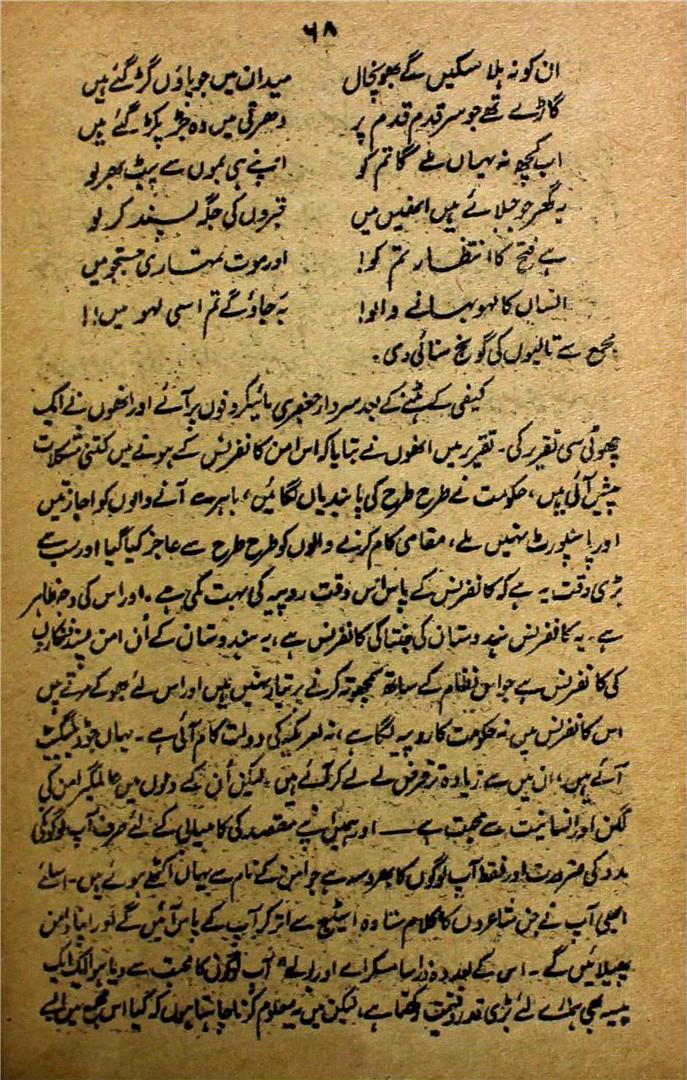 ۶۸
ان کو نہ ہلا سکیں گے بھونچال میدان میں جو پاؤں گڑ گئے ہیں
گاڑے تھے جو سر قدم قدم پر دھرتی میں وہ جڑ پکڑ گئے ہیں
اب کچھ نہ یہاں ملے گا تم کو اپنے ہی بموں سے پیٹ بھر لو
یہ گھر جو جلائے ہیں انھیں میں قبروں کی جگہ پسند کر لو
ہے فتح کا انتظار تم کو! اور موت تمہاری جستجو میں
انساں کا لہو بہانے والو! بہ جاؤ گے تم اسی لہو میں!!
مجمع سے تالیوں کی گونج سنائی دی۔
کیفی کے ہٹنے کے بعد سردار جعفری مائیکروفون پر آئے اور انھوں نے ایک
چھوٹی سی تقریر کی۔ تقریر میں انھوں نے بتایا کہ اس امن کانفرنس کے ہونے میں کتنی مشکلات
پیش آئی ہیں، حکومت نے طرح طرح کی پابندیاں لگائیں، باہر سے آنے والوں کو اجازتیں
اور پاسپورٹ نہیں ملے، مقامی کام کرنے والوں کو طرح طرح سے عاجز کیا گیا اور سب سے
بڑی دقت یہ ہے کہ کانفرنس کے پاس اس وقت روپیہ کی بہت کمی ہے۔ اور اس کی وجہ ظاہر
ہے۔ یہ کانفرنس ہندوستان کی جنتا کی کانفرنس ہے، یہ ہندوستان کے اُن امن پسند
کی کانفرنس ہے جو اس نظام کے ساتھ سمجھوتہ کرنے پر تیار نہیں ہیں اور اس لئے بھوکے مرتے ہیں
اس کانفرنس میں نہ حکومت کا روپیہ لگا ہے، نہ امریکہ کی دولت کام آئی ہے۔ یہاں جو ڈیلیگیٹ
آئے ہیں، ان میں سے زیادہ تر قرض لے لے کر آئے ہیں۔ لیکن اُن کے دلوں میں عالمگیر امن کی
لگن اور انسانیت سے محبت ہے — اور ہمیں اپنے مقصد کی کامیابی کے لئے صرف آپ لوگوں کی
مدد کی ضرورت اور فقط آپ لوگوں کا بھروسہ ہے جو امن کے نام سے یہاں اکٹھے ہوئے ہیں۔ اسلئے
ابھی آپ نے جن شاعروں کا کلام سنا وہ اسٹیج سے اتر کر آپ کے پاس آئیں گے اور اپنا دامن
پھیلائیں گے۔ اس کے بعد وہ ذرا سا مسکرائے اور بولے "آپ لوگوں کا محبت سے دیا ہوا ایک ایک
پیسہ بھی ہمارے لئے بڑی قدر و قیمت رکھتا ہے، لیکن میں یہ معلوم کرنا چاہتا ہوں کہ کیا اس مجمع میں ایسے